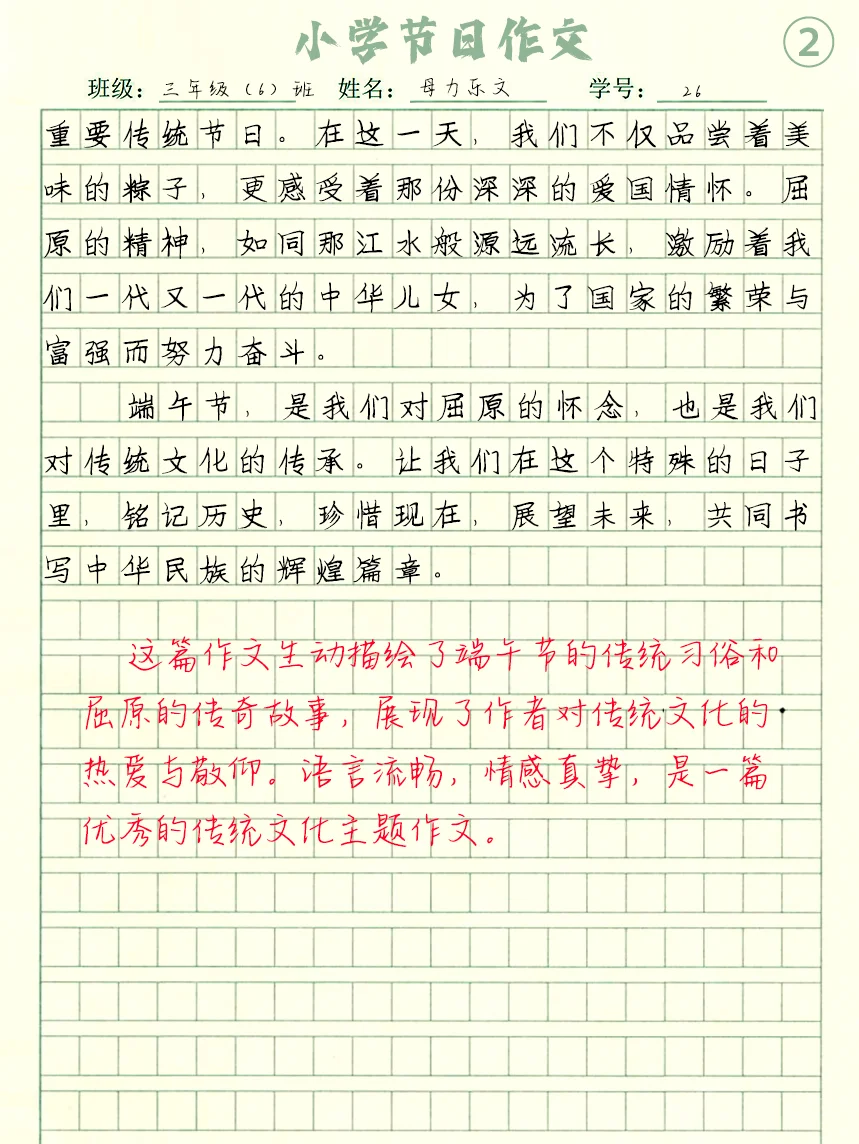 小学节日作文
2
班级：三年级（6）班 姓名：母力乐文 学号：26
重要传统节日。在这一天，我们不仅品尝着美
味的粽子，更感受着那份深深的爱国情怀。屈
原的精神，如同那江水般源远流长，激励着我
们一代又一代的中华儿女，为了国家的繁荣与
富强而努力奋斗。
端午节，是我们对屈原的怀念，也是我们
对传统文化的传承。让我们在这个特殊的日子
里，铭记历史，珍惜现在，展望未来，共同书
写中华民族的辉煌篇章。
这篇作文生动描绘了端午节的传统习俗和
屈原的传奇故事，展现了作者对传统文化的
热爱与敬仰。语言流畅，情感真挚，是一篇
优秀的传统文化主题作文。